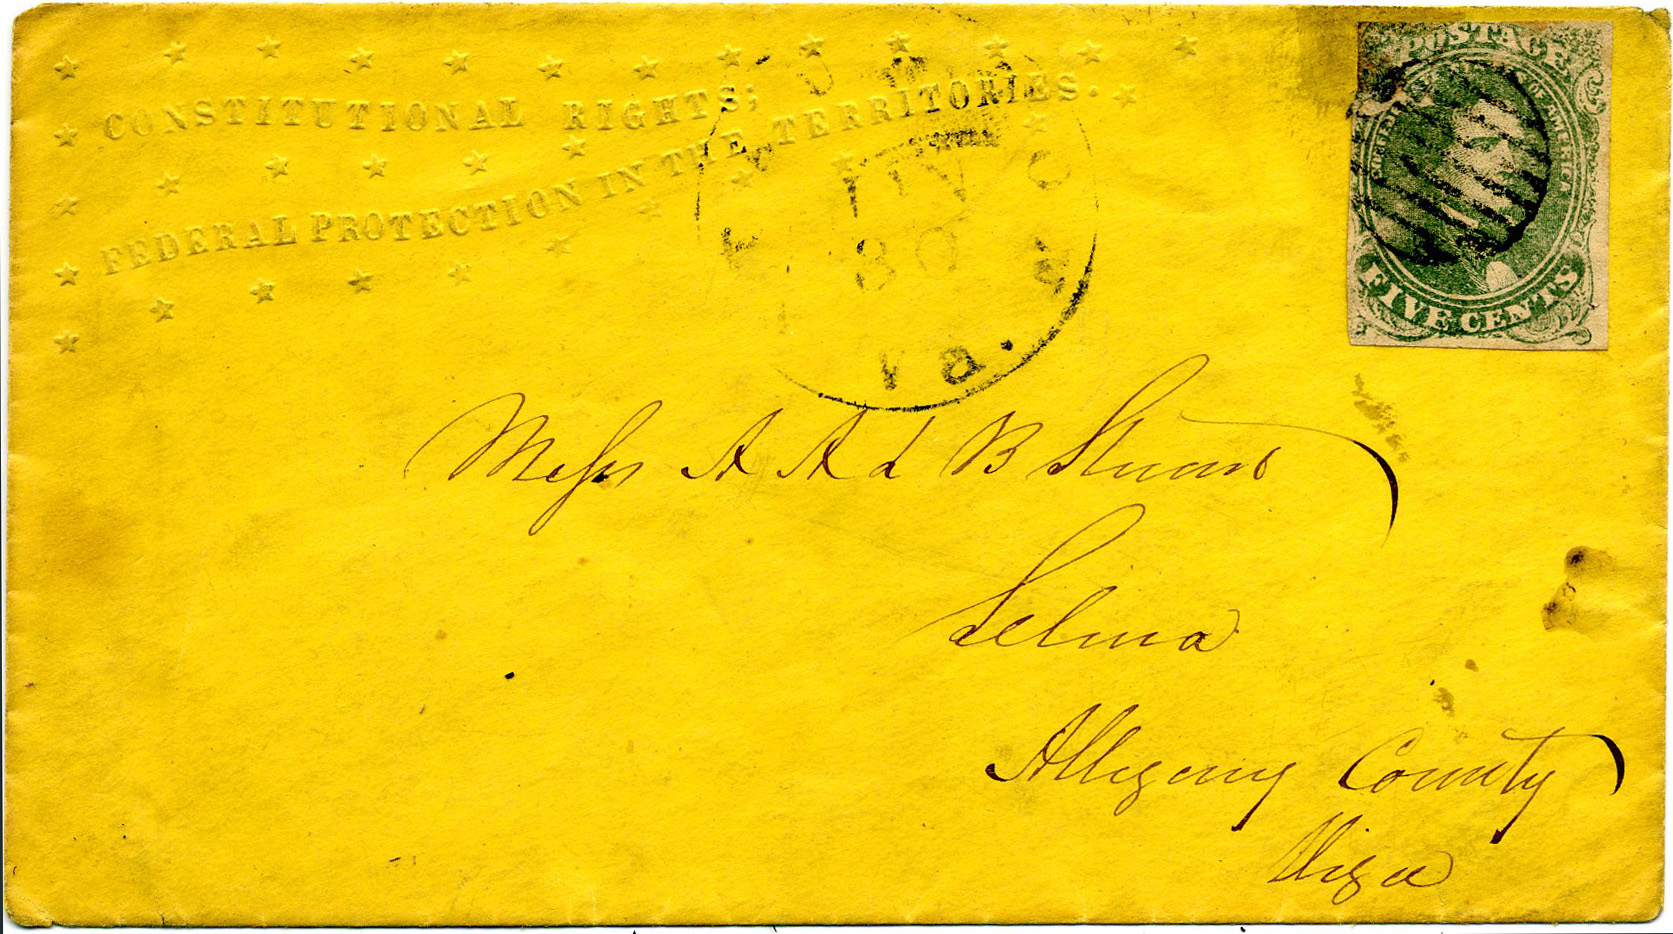 CONSTITUTIONAL RIGHTS;
FEDERAL PROTECTION IN THE TERRITORIES.
30
Va.
POSTAGE
OF AMERICA
FIVE CENTS
Messrs A A & B Stuart
Selma
Allegany County
Virga